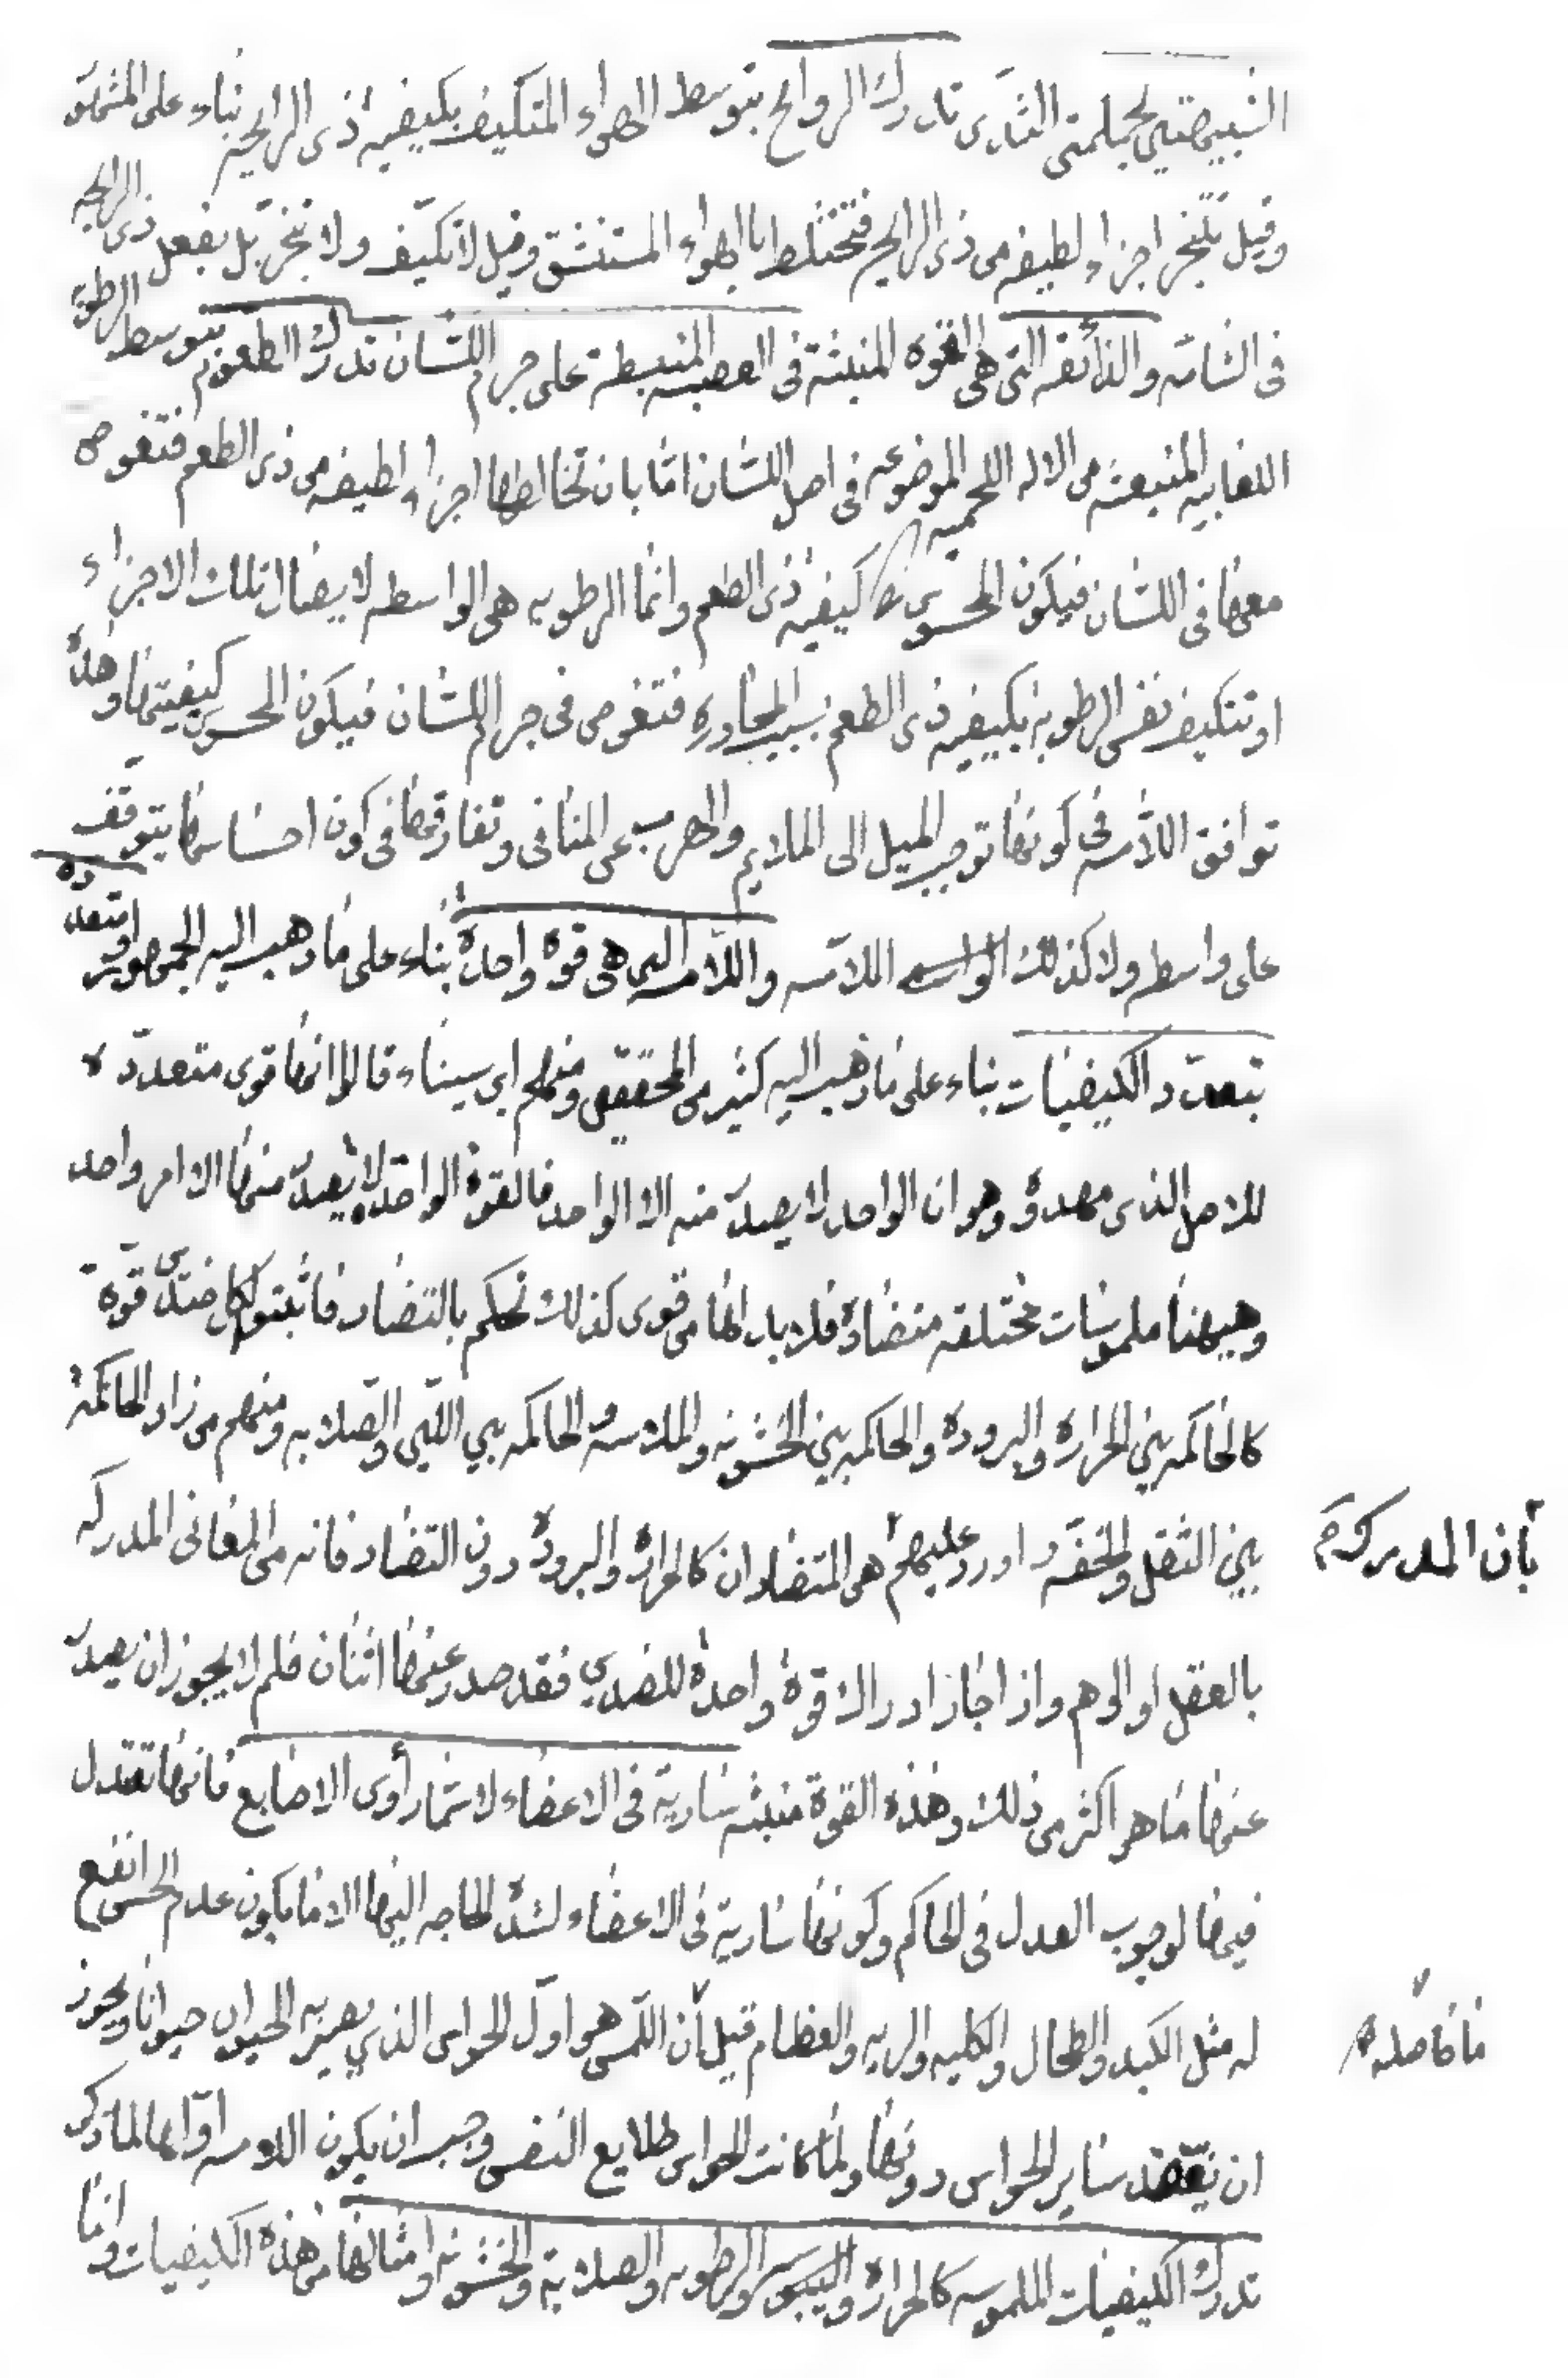 الشبيهتين بحلمتي الثدى تدرك الروايح بتوسط الهواء المتكيف بكيفيه ذى الرايحه بناء على المشهور
وقيل تبخر اجزاء لطيفه من ذى الرايحه فتختلط بالهواء المستنشق وقيل لا تكيف ولا تبخر بل بفعل ذى الرايحه
فى الشامه والذائقه التى هى القوه المنبثة فى العصبه المنبسطه على جرم اللسان تدرك الطعوم بتوسط الرطوبة
اللعابيه المنبعثه من الاله اللحميه الموضوعه فى اصل اللسان امّا بان تخالطها اجزاء لطيفه من ذى الطعم فتغوص
معها فى اللسان فيكون المحسوس كيفيه ذى الطعم وانما الرطوبه هى الواسطه لايصال تلك الاجزاء
او تتكيف نفس الرطوبه بكيفيه ذى الطعم بسبب المجاورة فتغوص فى جرم اللسان فيكون المحسوس كيفيتها وهذه
توافق اللامسه فى كونها توجب الميل الى الملايم والهرب عن المنافى وتفارقها فى كون احساسها يتوقف
على واسطه ولا كذلك اللامسه واللامسه التى هى قوة واحدة بناء على ما ذهب اليه الجمهور او متعددة
بتعدد الكيفيات بناء على ما ذهب اليه كثير من المحققين ومنهم ابن سيناء قالوا انها قوى متعددة
للاصل الذى مهدوه وهو ان الواحد لا يصدر منه الا الواحد فالقوة الواحدة لا يصدر منها الا امر واحد
وهيهنا ملموسات مختلفه متضادة فلا بد لها من قوى كذلك تحكم بالتضاد فاثبتوا لكل ضدين قوة
كالحاكمه بين الحرارة والبرودة والحاكمه بين الخشونه والملاسه والحاكمه بين اللين والصلابه ومنهم من زاد الحاكمة
بين الثقل والخفه واورد عليهم هى المتضادان كالحرارة والبرودة دون التضاد فانه من المعانى المدركه
بأن المدرك
بالعقل او الوهم واذا جاز ادراك قوة واحدة للضدين فقد صدر عنها اثنان فلم لا يجوز ان يصدر
عنها ما هو اكثر من ذلك وهذه القوة منبثه سارية فى الاعضاء لا سيما رأوس الاصابع فانها تعتدل
فيها لوجوب العدل فى الحاكم وكونها سارية فى الاعضاء لشدة الحاجه اليها الا ما يكون عدم الحس انفع
له مثل الكبد والطحال والكليه والريه والعظام قيل ان اللمس هو اول الحواس الذي يصير به الحيوان حيوانا ويجوز
ما حاصله
ان يفقد ساير الحواس دونها ولما كانت الحواس طلايع النفس وجب ان يكون اللامسه اولها لما ذكر
تدرك الكيفيات الملموسه كالحرارة واليبوسه والرطوبه والصلابة والخشونه وامثالها من هذه الكيفيات وامّا